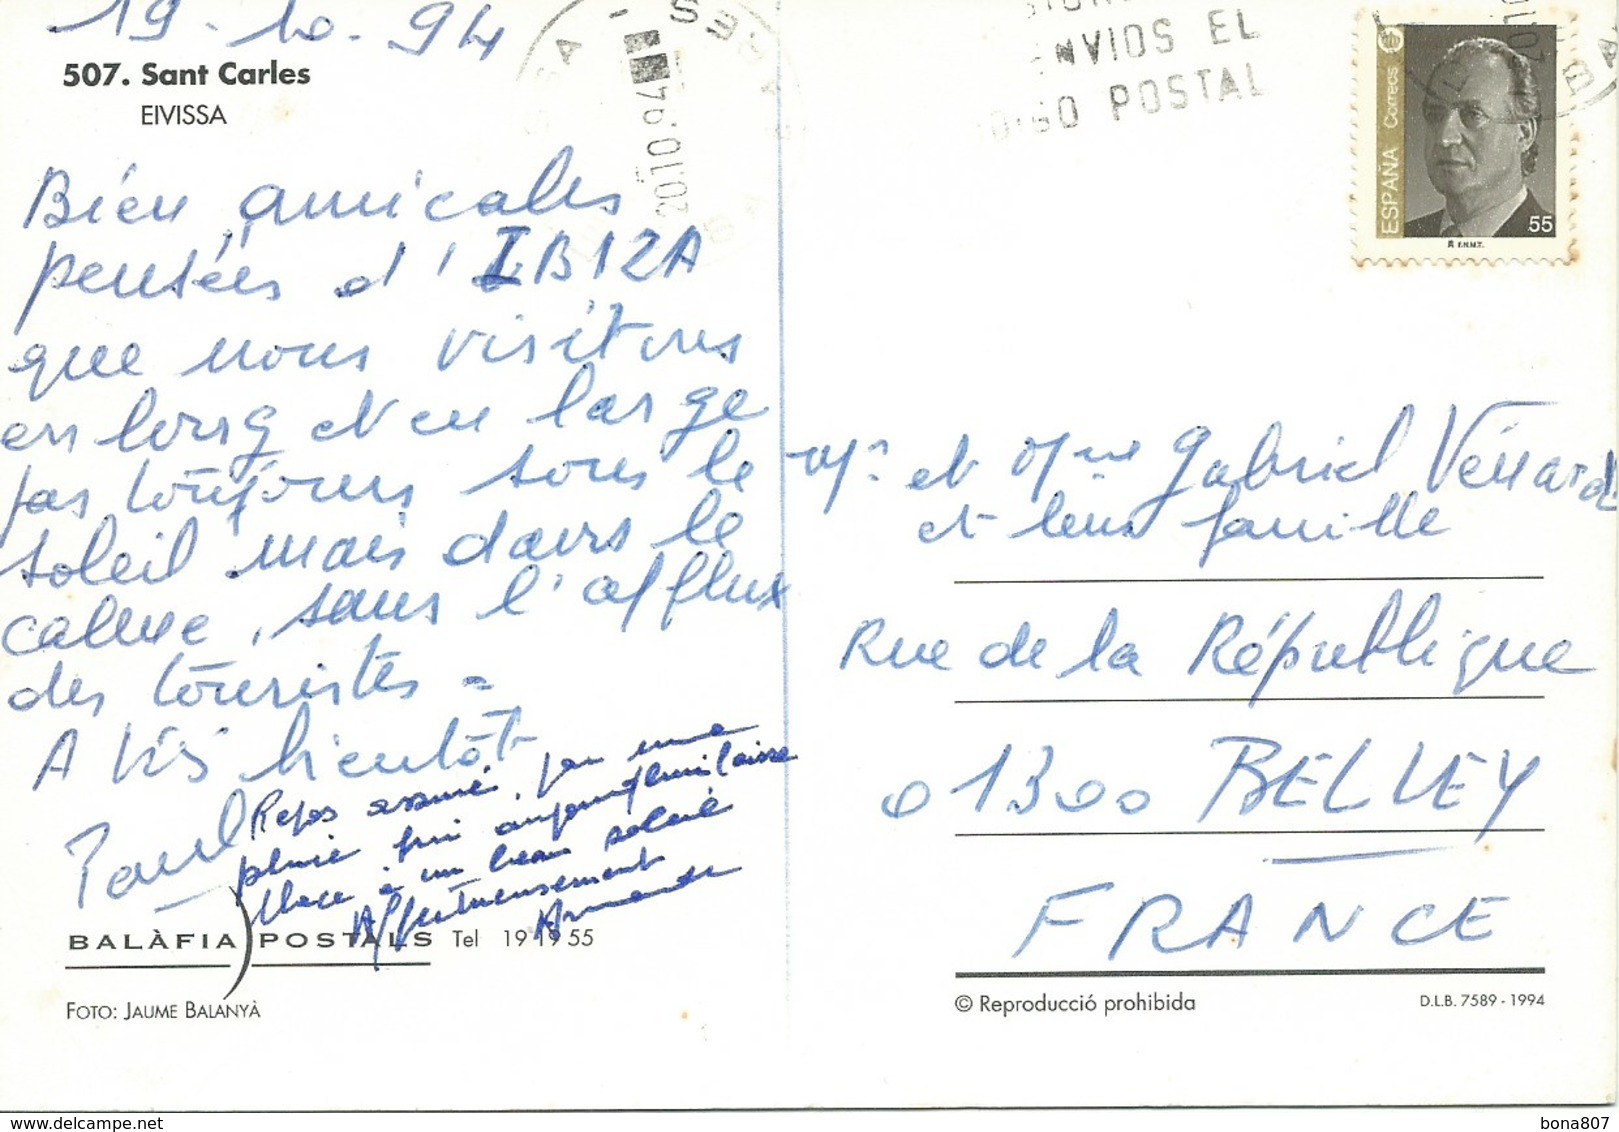 19-10-94
507. Sant Carles
EIVISSA
Bien amicales
pensées d'IBIZA
que nous visitons
en long et en large
pas toujours sous le
soleil mais dans le
calme, sans l'afflux
des touristes -
A très bientôt
Paul
Repos assuré, par une
pluie fine aujourd'hui laisse
place à un beau soleil
Affectueusement
BALÀFIA POSTALS Tel 19 19 55
FOTO: JAUME BALANYÀ
20.10.94
ENVIOS EL
POSTAL
ESPAÑA Correos
55
F.N.M.T.
Mr et Mme Gabriel
et leur famille
Rue de la République
01300 BELLEY
FRANCE
© Reproducció prohibida
D.L.B. 7589 - 1994
bona807